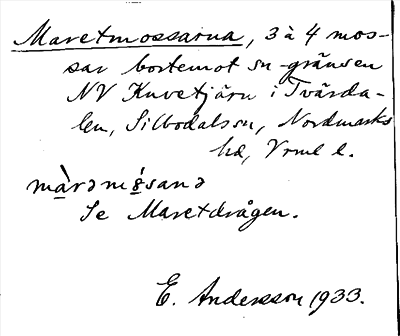 Maretmossarna, 3 à 4 mos-
sar bortemot sn-gränsen
NV Kuvetjärn i Tvärda-
len, Silbodals sn, Nordmarks
hd, Vrml l.
màrəmɷ́sanə
Se Maretdrågen.
E. Andersson 1933.